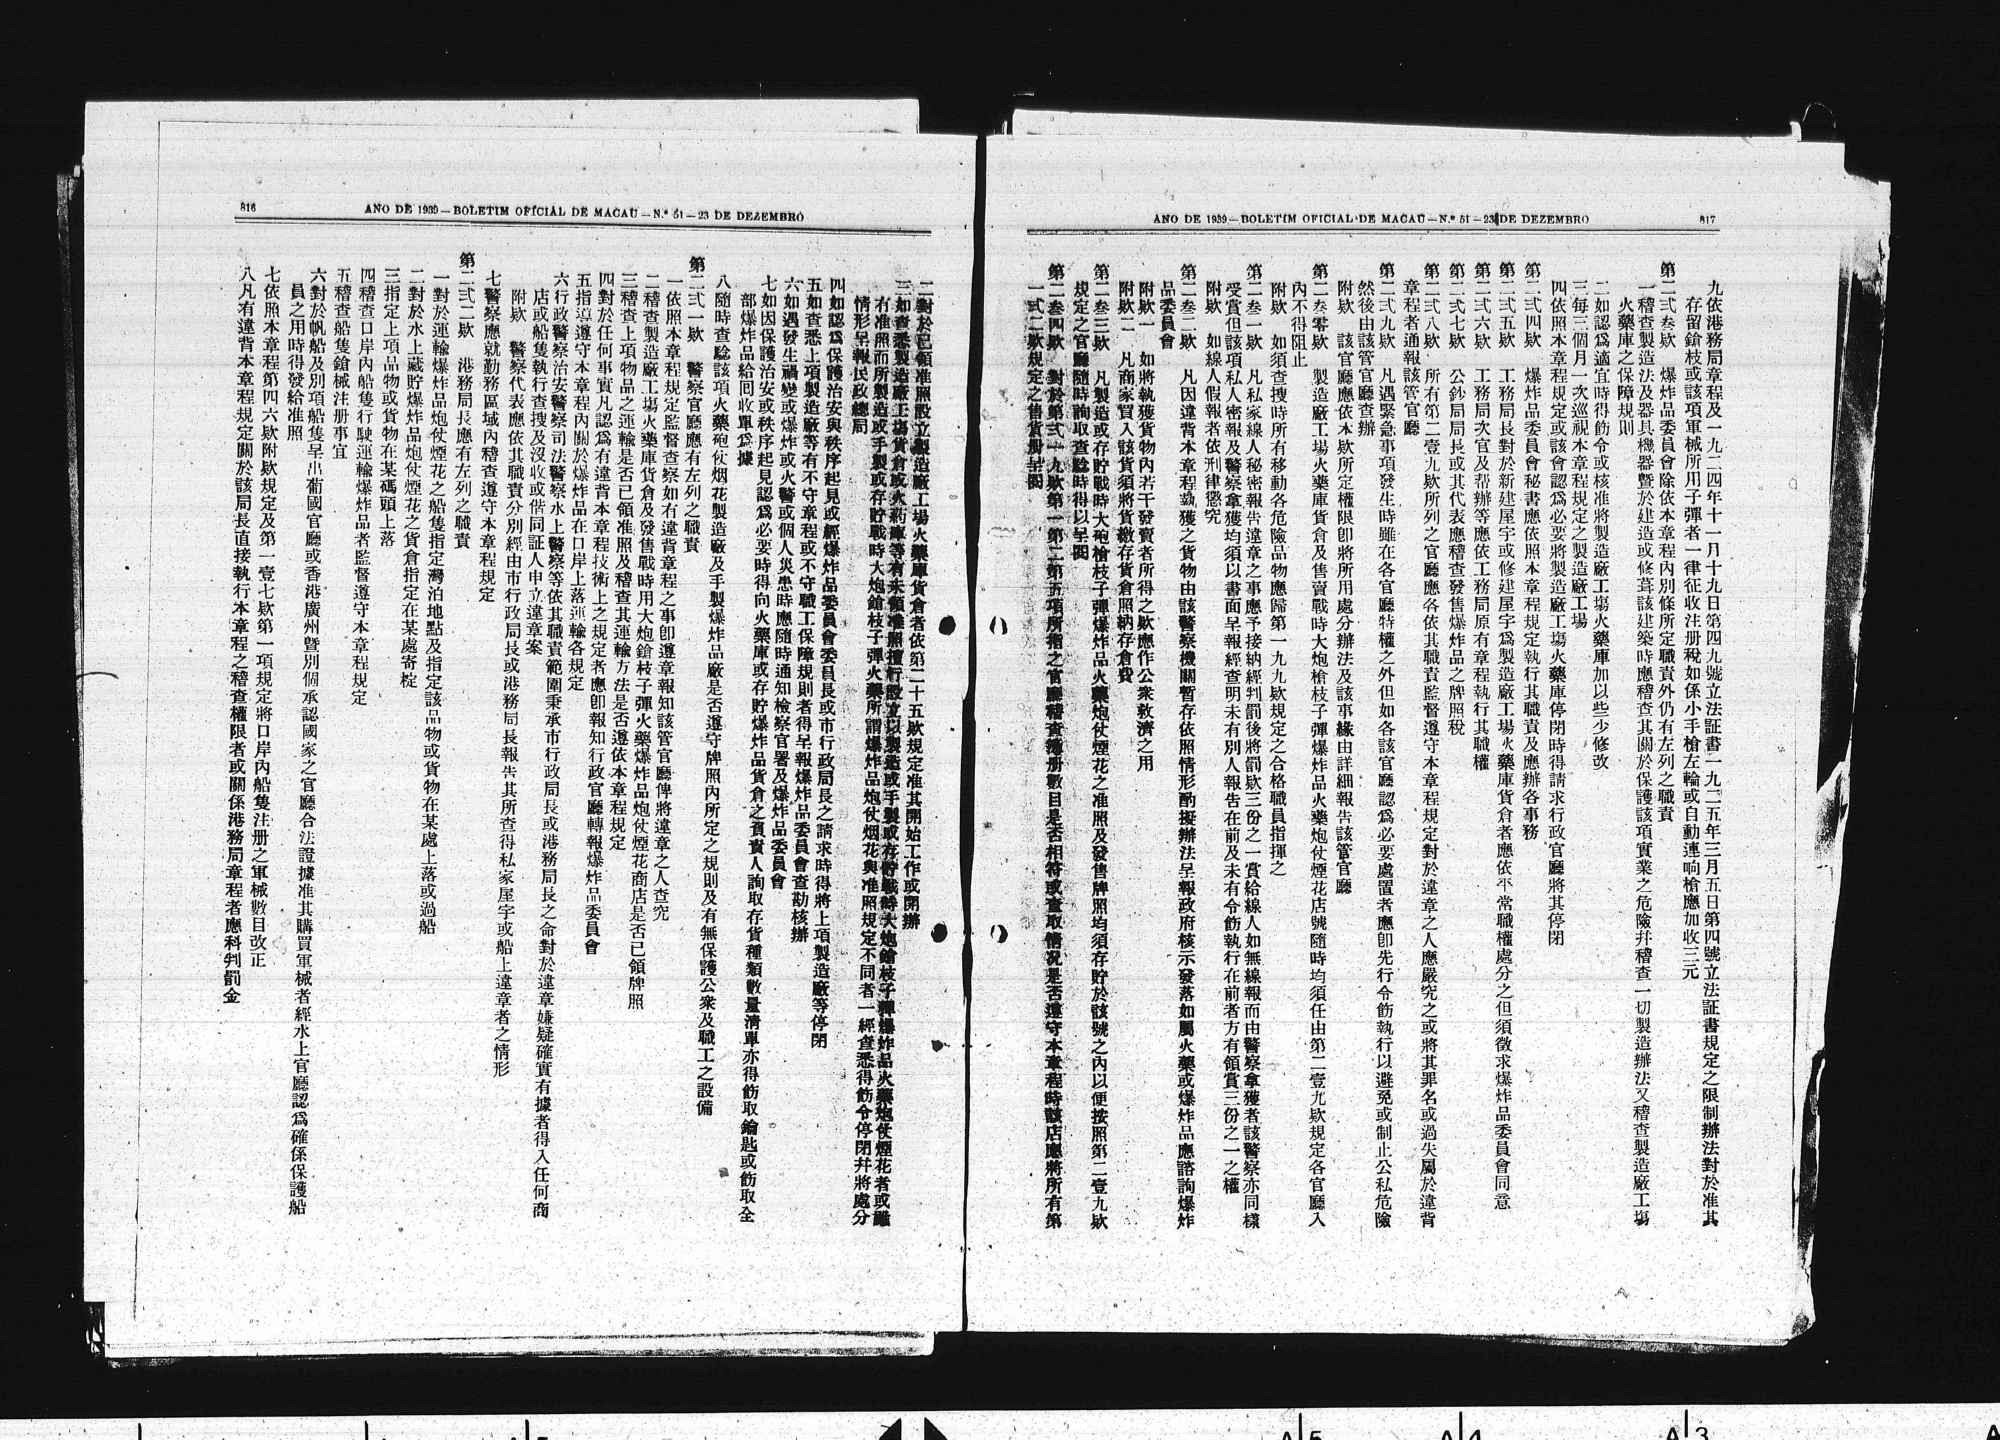 816
ANO DE 1939 — BOLETIM OFICIAL DE MACAU — N.º 51 — 23 DE DEZEMBRO
二對於已領准照設立製造廠工場火藥庫貨倉者依第二十五欵規定准其開始工作或開辦
三如查悉製造廠工塲貨倉或火葯庫等有未領准照擅行設立以製造或手製或存貯戰時大炮鎗枝子彈爆炸品火藥炮仗煙花者或雖
有准照而所製造或手製或存貯戰時大炮鎗枝子彈火藥所謂爆炸品炮仗烟花與准照規定不同者一經查悉得飭令停閉幷將處分
情形呈報民政總局
四如認爲保護治安與秩序起見或經爆炸品委員會委員長或市行政局長之請求時得將上項製造廠等停閉
五如查悉上項製造廠等有不守章程或不守職工保障規則者得呈報爆炸品委員會查勘核辦
六如遇發生禍變或爆炸或火警或個人災患時應隨時通知檢察官署及爆炸品委員會
七如因保護治安或秩序起見認爲必要時得向火藥庫或存貯爆炸品貨倉之負責人詢取存貨種類數量清單亦得飭取鑰匙或飭取全
部爆炸品給囘收單爲據
八隨時查騐該項火藥砲仗烟花製造廠及手製爆炸品廠是否遵守牌照內所定之規則及有無保護公衆及職工之設備
第二弍一欵　警察官廳應有左列之職責
一依照本章程規定監督查察如有違背章程之事卽遵章報知該管官廳俾將違章之人查究
二稽查製造廠工塲火藥庫貨倉及發售戰時用大炮鎗枝子彈火藥爆炸品炮仗煙花商店是否已領牌照
三稽查上項物品之運輸是否已領准照及稽查其運輸方法是否遵依本章程規定
四對於任何事實凡認爲有違背本章程技術上之規定者應卽報知行政官廳轉報爆炸品委員會
五指導遵守本章程內關於爆炸品在口岸上落運輸各規定
六行政警察治安警察司法警察水上警察等依其職責範圍秉承市行政局長或港務局長之命對於違章嫌疑確實有據者得入任何商
店或船隻執行查搜及沒收或偕同証人申立違章案
附欵　警察代表應依其職責分別經由市行政局長或港務局長報吿其所查得私家屋宇或船上違章者之情形
七警察應就勤務區域內稽查遵守本章程規定
第二弍二欵　港務局長應有左列之職責
一對於運輸爆炸品炮仗煙花之船隻指定灣泊地點及指定該品物或貨物在某處上落或過船
二對於水上藏貯爆炸品炮仗煙花之貨倉指定在某處寄椗
三指定上項品物或貨物在某碼頭上落
四稽查口岸內船隻行駛運輸爆炸品者監督遵守本章程規定
五稽查船隻鎗械注册事宜
六對於帆船及別項船隻呈出葡國官廳或香港廣州曁別個承認國家之官廳合法證據准其購買軍械者經水上官廳認爲確係保護船
員之用時得發給准照
七依照本章程第四六欵附欵規定及第一壹七欵第一項規定將口岸內船隻注册之軍械數目改正
八凡有違背本章程規定關於該局長直接執行本章程之稽查權限者或關係港務局章程者應科判罰金
ANO DE 1939 — BOLETIM OFICIAL DE MACAU — N.º 51 — 23 DE DEZEMBRO
817
九依港務局章程及一九二四年十一月十九日第四九號立法証書一九二五年三月五日第四號立法証書規定之限制辦法對於准其
存留鎗枝或該項軍械所用子彈者一律征收注册稅如係小手槍左輪或自動連响槍應加收三元
第二弍叁欵　爆炸品委員會除依本章程內別條所定職責外仍有左列之職責
一稽查製造法及器具機器曁於建造或修葺該建築時應稽查其關於保護該項實業之危險幷稽查一切製造辦法又稽查製造廠工塲
火藥庫之保障規則
二如認爲適宜時得飭令或核准將製造廠工塲火藥庫加以些少修改
三每三個月一次巡視本章程規定之製造廠工塲
四依照本章程規定或該會認爲必要將製造廠工塲火藥庫停閉時得請求行政官廳將其停閉
第二弍四欵　爆炸品委員會秘書應依照本章程規定執行其職責及應辦各事務
第二弍五欵　工務局長對於新建屋宇或修建屋宇爲製造廠工場火藥庫貨倉者應依平常職權處分之但須徵求爆炸品委員會同意
第二弍六欵　工務局次官及帮辦等應依工務局原有章程執行其職權
第二弍七欵　公鈔局局長或其代表應稽查發售爆炸品之牌照稅
第二弍八欵　所有第二壹九欵所列之官廳應各依其職責監督遵守本章程規定對於違章之人應嚴究之或將其罪名或過失屬於違背
章程者通報該管官廳
第二弍九欵　凡遇緊急事項發生時雖在各官廳特權之外但如各該官廳認爲必要處置者應卽先行令飭執行以避免或制止公私危險
然後由該管官廳查辦
附欵　該官廳應依本欵所定權限卽將所用處分辦法及該事緣由詳細報吿該管官廳
第二叁零欵　製造廠工場火藥庫貨倉及售賣戰時大炮槍枝子彈爆炸品火藥炮仗煙花店號隨時均須任由第二壹九欵規定各官廳入
內不得阻止
附欵　如須查搜時所有移動各危險品物應歸第一九九欵規定之合格職員指揮之
第二叁一欵　凡私家線人秘密報吿違章之事應予接納經判罰後將罰欵三份之一賞給線人如無線報而由警察拿獲者該警察亦同樣
受賞但該項私人密報及警察拿獲均須以書面呈報經查明未有別人報吿在前及未有令飭執行在前者方有領賞三份之一之權
附欵　如線人假報者依刑律懲究
第二叁二欵　凡因違背本章程執獲之貨物由該警察機關暫存依照情形酌擬辦法呈報政府核示發落如屬火藥或爆炸品應諮詢爆炸
品委員會
附欵一　如將執獲貨物內若干發賣者所得之欵應作公衆救濟之用
附欵二　凡商家買入該貨須將貨繳存貨倉照納存倉費
第二叁三欵　凡製造或存貯戰時大砲槍枝子彈爆炸品火藥炮仗煙花之准照及發售牌照均須存貯於該號之內以便按照第二壹九欵
規定之官廳隨時詢取查驗時得以呈閱
第二叁四欵　對於第弍一九欵第一第二第五項所指之官廳稽查簿册數目是否相符或查取情况是否遵守本章程時該店應將所有第
一弍二欵規定之售貨册呈閱